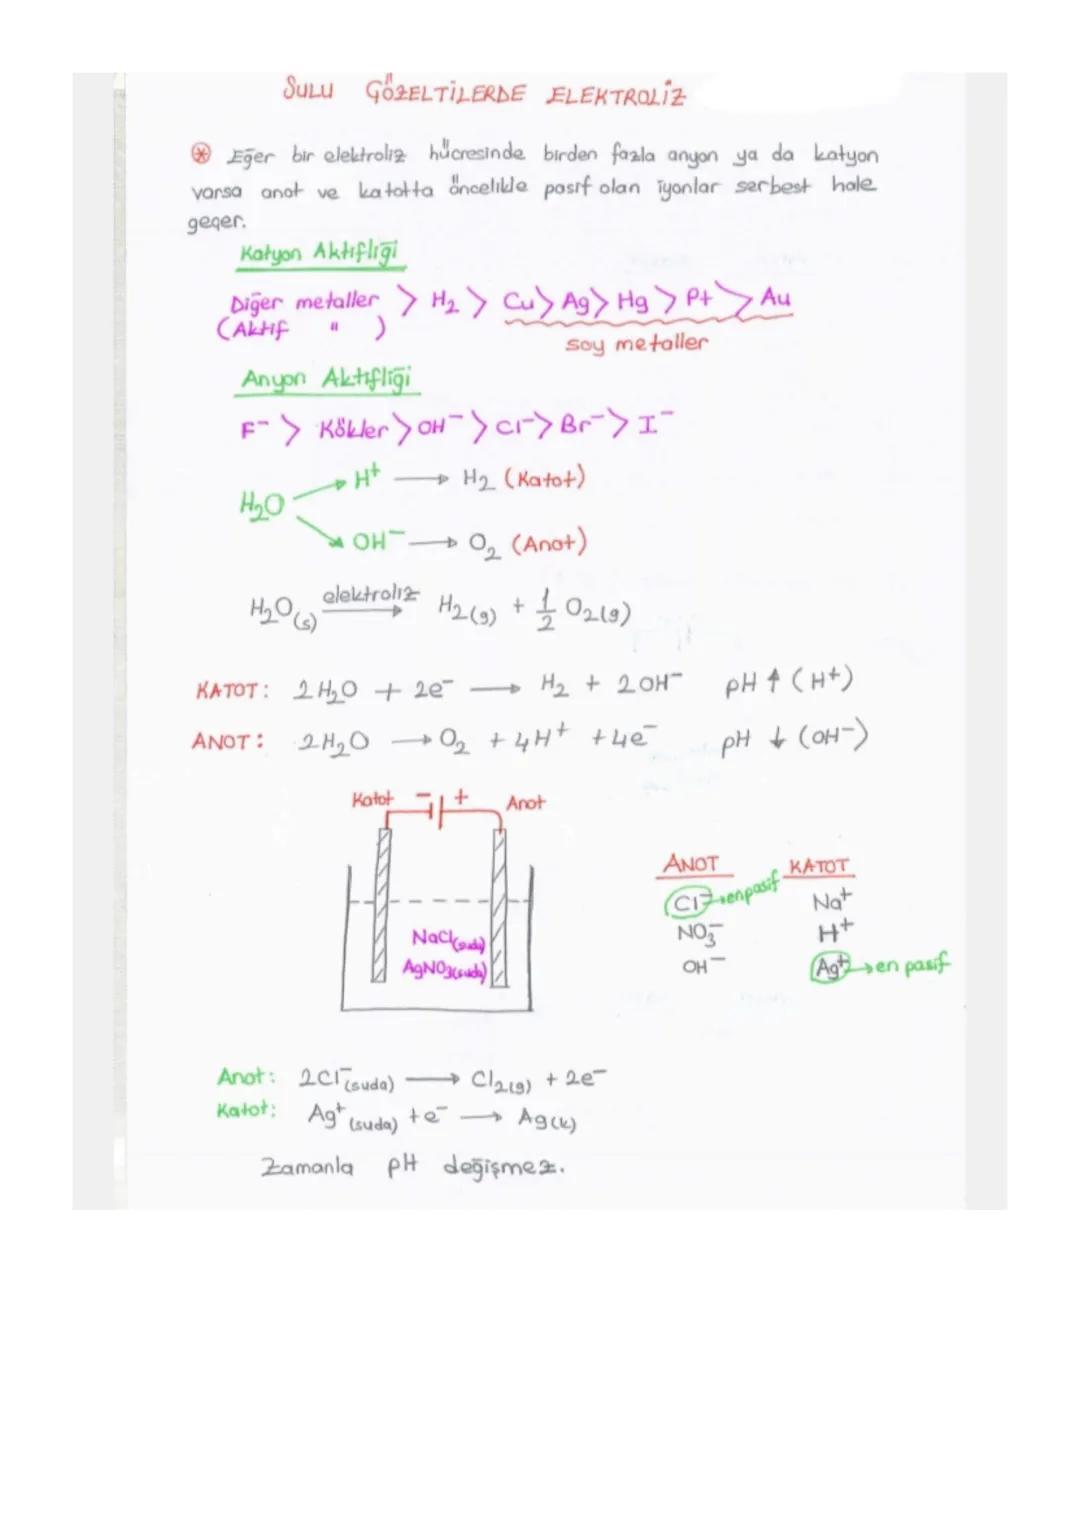 SULU GÖZELTİLERDE ELEKTROLİZ
⊛ Eğer bir elektroliz hücresinde birden fazla anyon ya da katyon
varsa anot ve katotta öncelikle pasif olan iyonlar serbest hale
geçer.
Katyon Aktifliği
Diğer metaller > H₂ > Cu > Ag > Hg > Pt > Au
(Aktif " )
soy metaller
Anyon Aktifliği
F⁻ > Kökler > OH⁻ > Cl⁻ > Br⁻ > I⁻
H⁺ → H₂ (Katot)
H₂O
OH⁻ → O₂ (Anot)
H₂O(s) elektroliz → H₂(g) + 1/2 O₂(g)
KATOT: 2H₂O + 2e⁻ → H₂ + 2OH⁻ pH ↑ (H⁺)
ANOT: 2H₂O → O₂ + 4H⁺ + 4e⁻ pH ↓ (OH⁻)
Katot - + Anot
ANOT KATOT
Cl⁻ → en pasif Na⁺
NaCl(suda)
NO₃⁻ H⁺
AgNO₃(suda)
OH⁻ Ag⁺ → en pasif
Anot: 2Cl⁻(suda) → Cl₂(g) + 2e⁻
Katot: Ag⁺(suda) + e⁻ → Ag(k)
Zamanla pH değişmez.